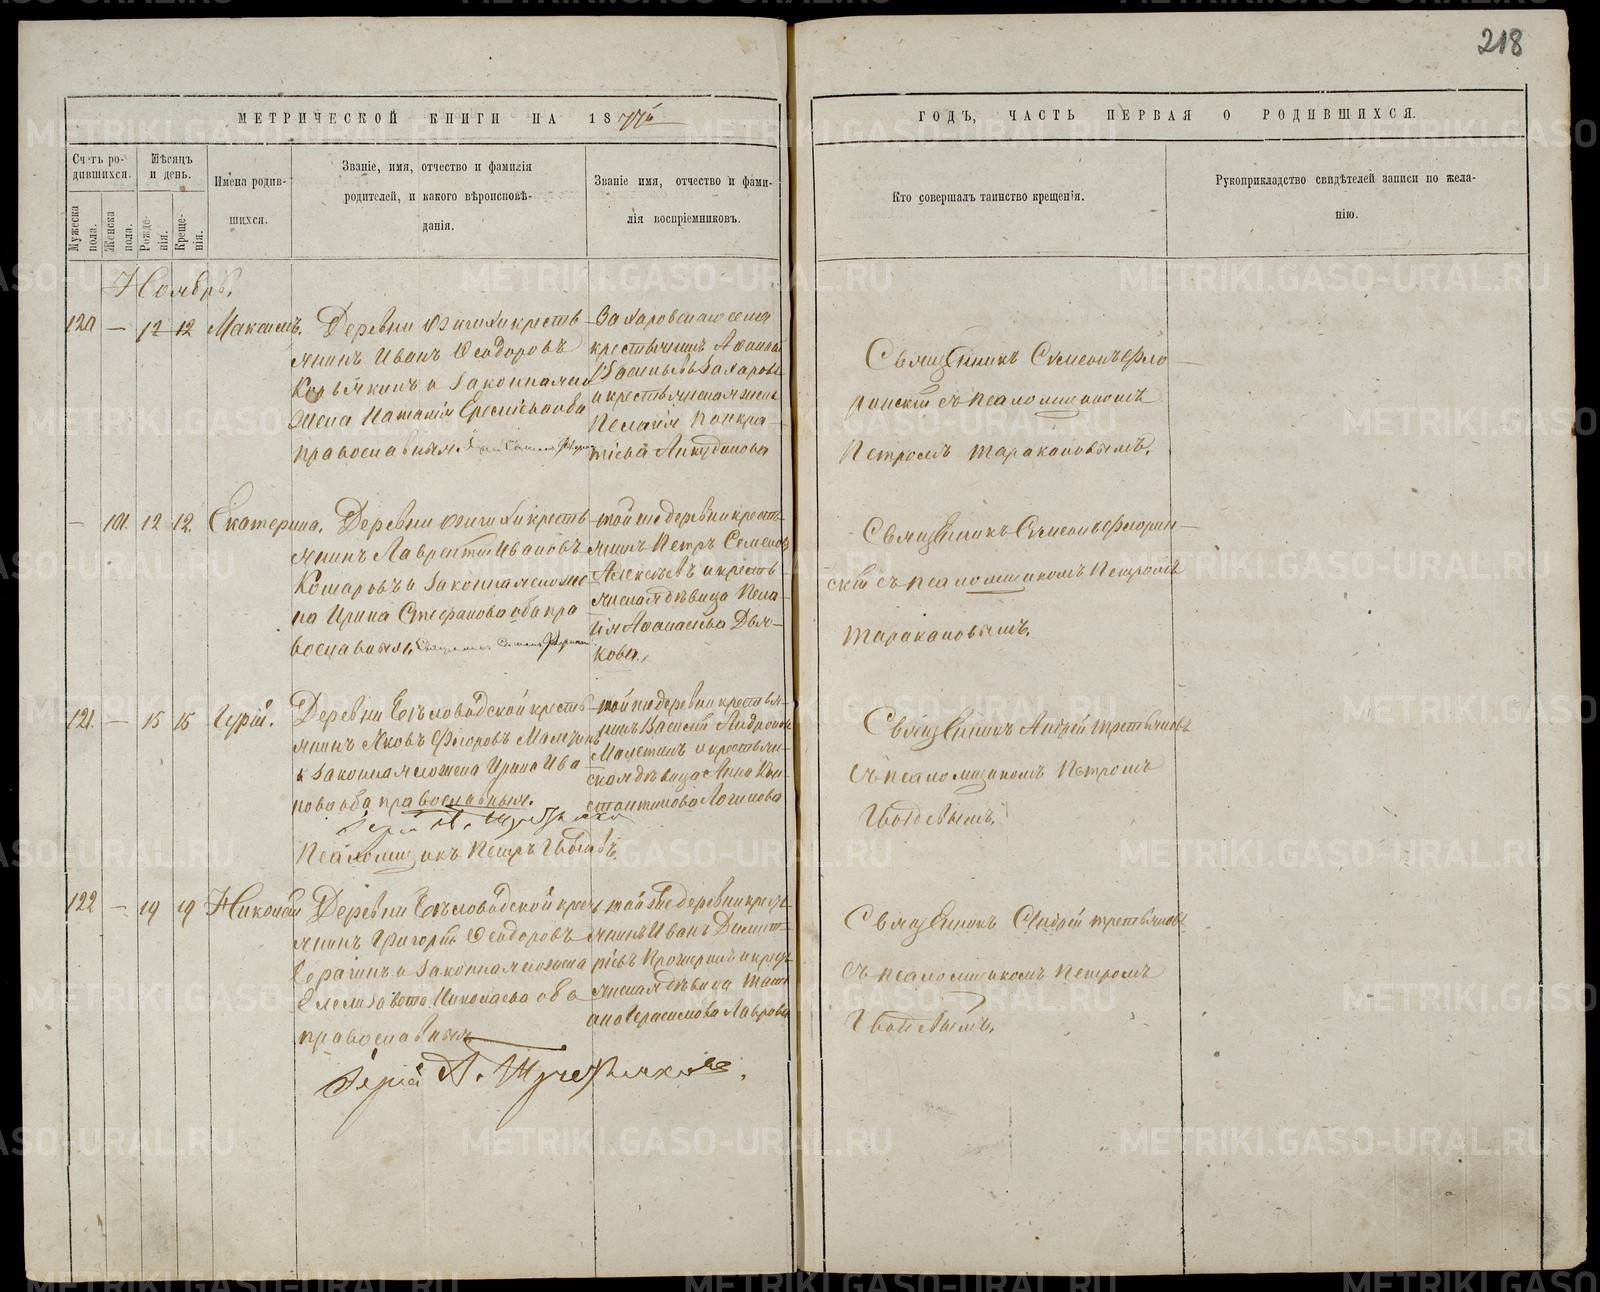 218
МЕТРИЧЕСКОЙ КНИГИ НА 1877й
ГОДЪ, ЧАСТЬ ПЕРВАЯ О РОДИВШИХСЯ.
Счетъ ро-
дившихся.
Мѣсяцъ
и день.
Мужеска
пола.
Женска
пола.
Рожде-
нія.
Креще-
нія.
Имена родив-
шихся.
Званіе, имя, отчество и фамилія
родителей, и какого вѣроисповѣ-
данія.
Званіе имя, отчество и фами-
лія воспріемниковъ.
Кто совершалъ таинство крещенія.
Рукоприкладство свидѣтелей записи по жела-
нію.
Ноябрь.
120 — 12 12 Максимъ.
Деревни крестъ
янинъ Иванъ Ѳеодоровъ
и законная его
жена Наталія
православныя.
Захаровскаго села
крестьянинъ
Васильевъ Захаровъ
и крестьянская жена
Пелагія Панкра-
тіева Анкудинова
Священникъ Сѵмеонъ Фло-
ринскій съ псаломщикомъ
Петромъ Таракановымъ.
— 101. 12 12. Екатерина.
Деревни крестъ
янинъ Лаврентій Ивановъ
Комаровъ и законная его же
на Ирина Стефанова оба пра
вославныя.
той же деревни кресть-
янинъ Петръ Семеновъ
Алексѣевъ и кресть
янская дѣвица Пела
гія Аѳанасьева Дья-
кова.
Священникъ Сѵмеонъ Флорин-
скій съ псаломщикомъ Петромъ
Таракановымъ.
121. — 15 15 Гурій.
Деревни Бѣловодской кресть
янинъ Яковъ Ѳедоровъ
и законная его жена Ирина Ива
нова оба православныя.
Іерей А.
Псаломщикъ Петръ
той же деревни крестья-
нинъ Василій
и крестьян-
ская дѣвица Анна Кон-
стантинова Логинова
Священникъ Андрей Третьяковъ
съ псаломщикомъ Петромъ
122 — 19 19 Николай
Деревни Бѣловодской крест
янинъ Григорій Ѳеодоровъ
и законная его жена
Елисавета Николаева оба
православныя
Іерей А.
той же деревни крест
янинъ Иванъ Димит-
ріевъ и крест
янская дѣвица Тать
яна Герасимова Лаврова
Священникъ Андрей Третьяковъ
съ псаломщикомъ Петромъ
METRIKI.GASO-URAL.RU